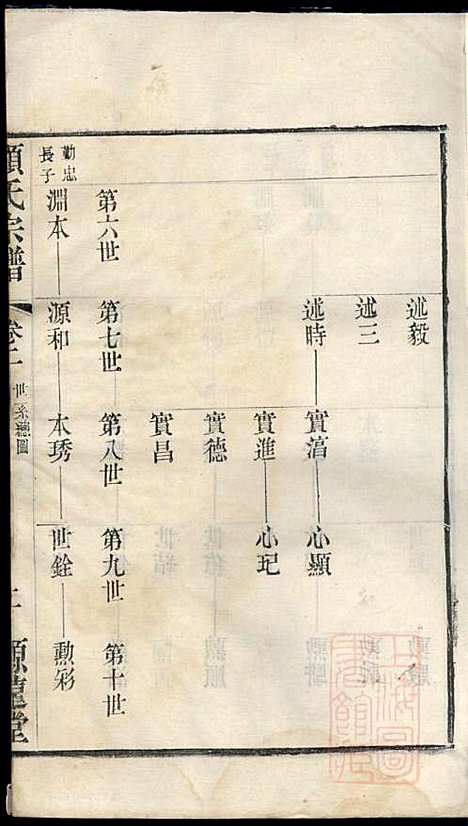 述毅
述三
述時 實滈 心顯
實進 心玘
實德
實昌
第六世 第七世 第八世 第九世 第十世
勤忠
長子
淵本 源和 本琇 世銓 勲彩
顧氏宗譜 卷二 世系總圖